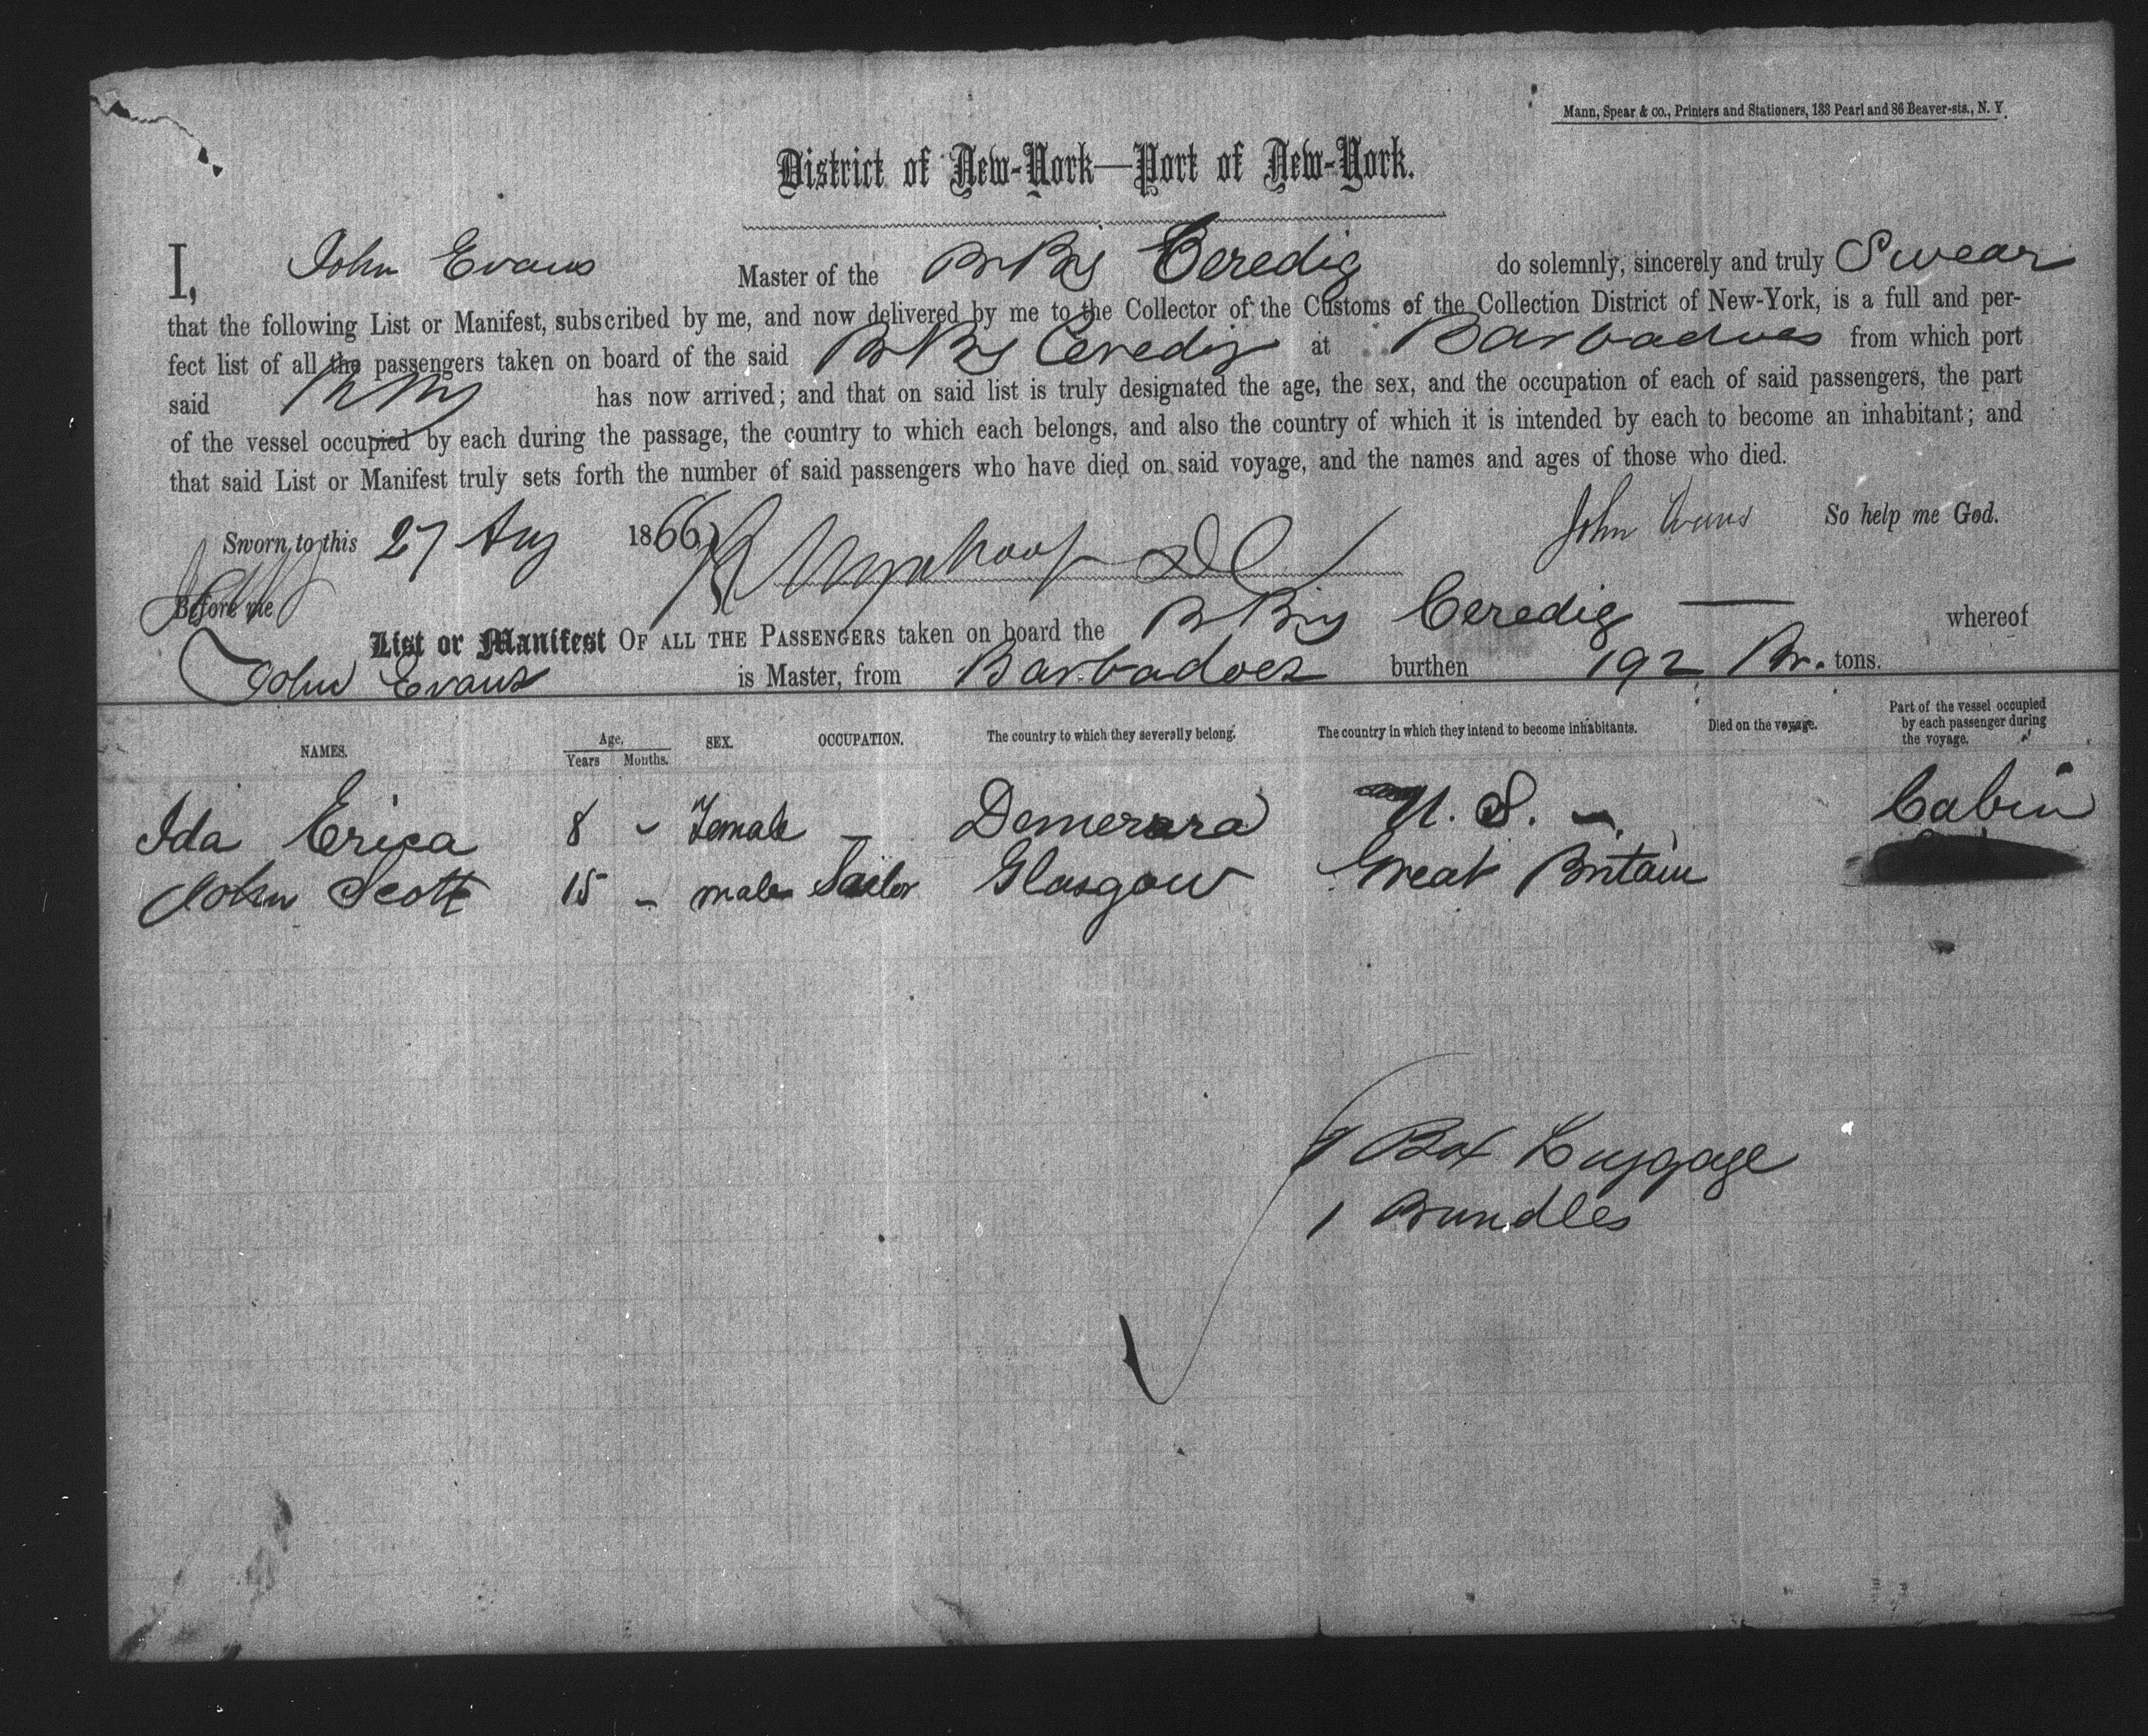 Mann, Spear & co., Printers and Stationers, 133 Pearl and 86 Beaver-sts., N. Y.
District of New-York—Port of New-York.
I, John Evans Master of the Br Brig Ceredig do solemnly, sincerely and truly Swear
that the following List or Manifest, subscribed by me, and now delivered by me to the Collector of the Customs of the Collection District of New-York, is a full and per-
fect list of all the passengers taken on board of the said Br Brig Ceredig at Barbadoes from which port
said Br Brig has now arrived; and that on said list is truly designated the age, the sex, and the occupation of each of said passengers, the part
of the vessel occupied by each during the passage, the country to which each belongs, and also the country of which it is intended by each to become an inhabitant; and
that said List or Manifest truly sets forth the number of said passengers who have died on said voyage, and the names and ages of those who died.
Sworn to this 27 Aug 1866 John Evans So help me God.
Before me
List or Manifest OF ALL THE PASSENGERS taken on board the Br Brig Ceredig — whereof
John Evans is Master, from Barbadoes burthen 192 Br. tons.
NAMES. Age, Years Months. SEX. OCCUPATION. The country to which they severally belong. The country in which they intend to become inhabitants. Died on the voyage. Part of the vessel occupied by each passenger during the voyage.
Ida Erica 8 - Female — Demerara U. S. - Cabin
John Scott 15 - male Sailor Glasgow Great Britain
1 Box Luggage
1 Bundles